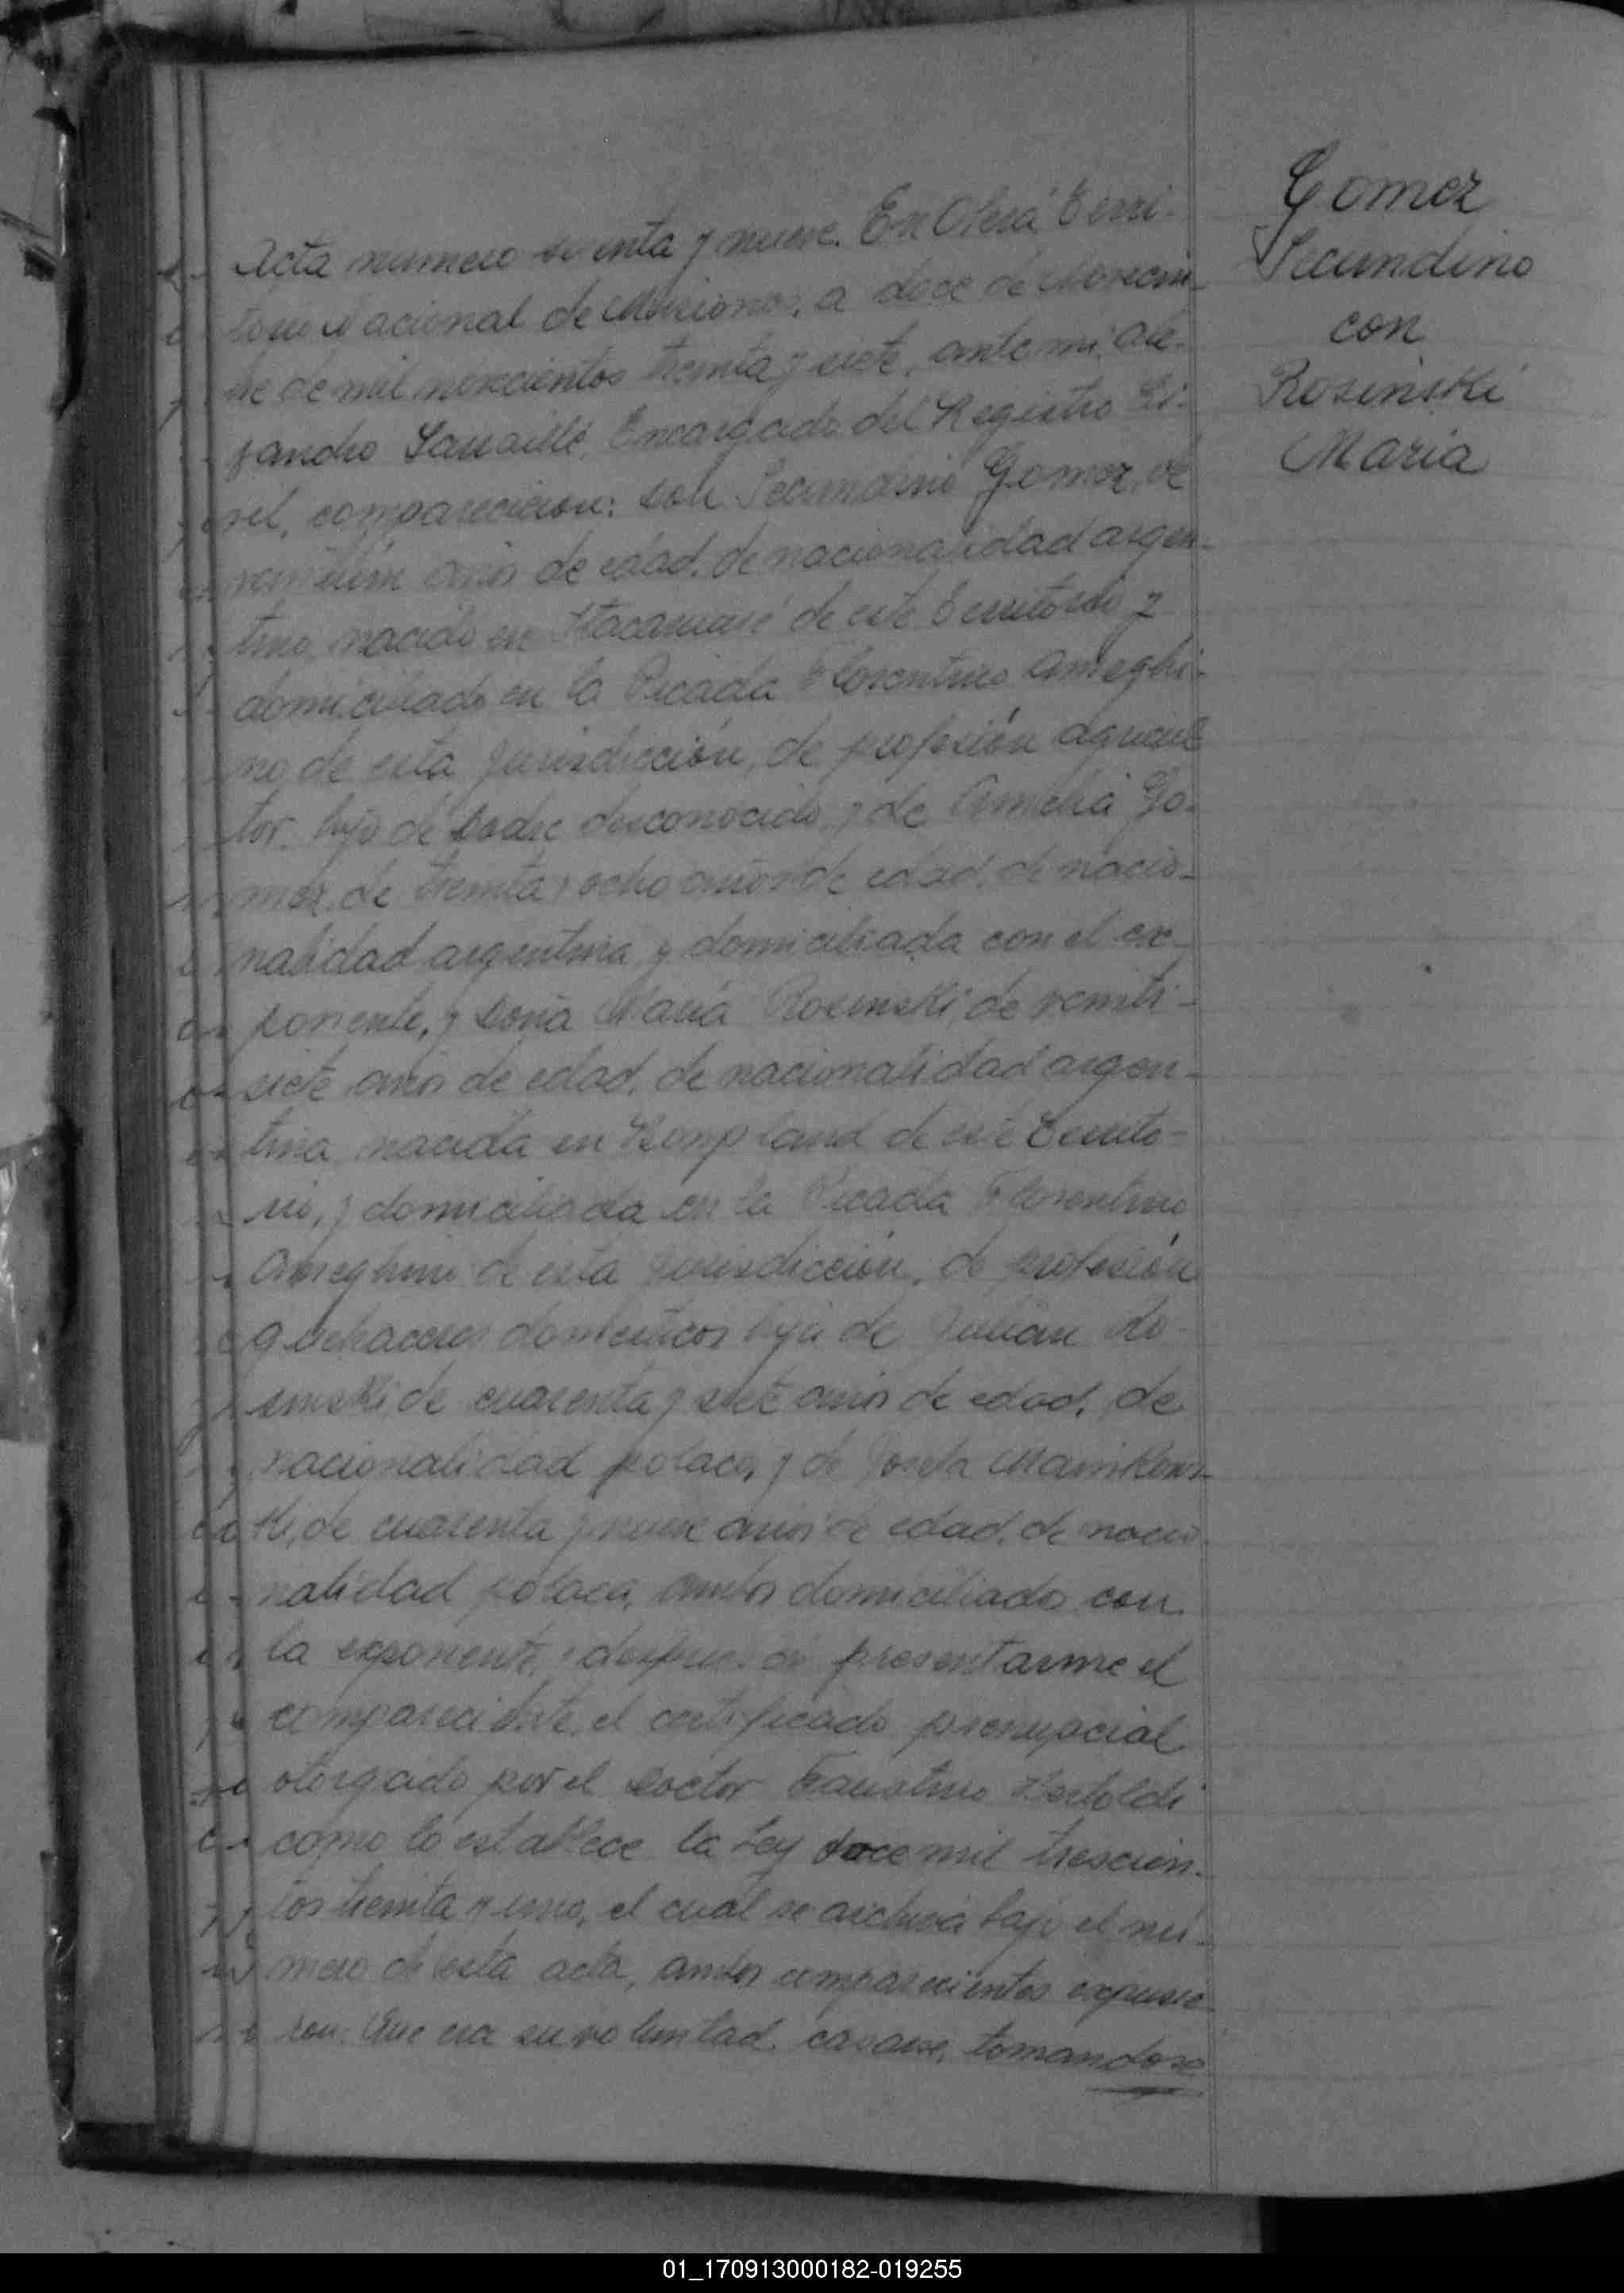 Gomez
Secundino
con
Rosinski
Maria
Acta numero setenta y nueve. En Oberá Terri-
torio Nacional de Misiones, a doce de Noviem-
bre de mil novecientos treinta y siete, ante mi, Ale-
jandro Encargado del Registro Ci-
vil, comparecieron: Don Secundino Gomez, de
años de edad, de nacionalidad argen-
tino, nacido en Itacaruaré de este Territorio y
domiciliado en la Picada Florentino Ameghi-
no de esta jurisdicción, de profesión agricul-
tor, hijo de Padre desconocido, y de Amelia Go-
mez, de treinta y ocho años de edad, de nacio-
nalidad argentina, y domiciliada con el ex-
ponente, y Doña Maria Rosinski, de veinti-
siete años de edad, de nacionalidad argen-
tina nacida en Bonpland de este Territo-
rio, y domiciliada en la Picada Florentino
Ameghino de esta jurisdicción, de profesión
quehaceres domésticos hija de Julian Ro-
sinski, de cuarenta y siete años de edad, de
nacionalidad polaco, y de Josefa
ki, de cuarenta y nueve años de edad, de nacio-
nalidad polaca, ambos domiciliado con
la exponente, y despues de presentarme el
compareciente, el certificado prenupcial
otorgado por el Doctor Faustino Bertoldi
como lo establece la Ley doce mil trescien-
tos treinta y uno, el cual se archiva bajo el nú-
mero de esta acta, ambos comparecientes expusie-
ron: Que era su voluntad casarse, tomandose
01_170913000182-019255